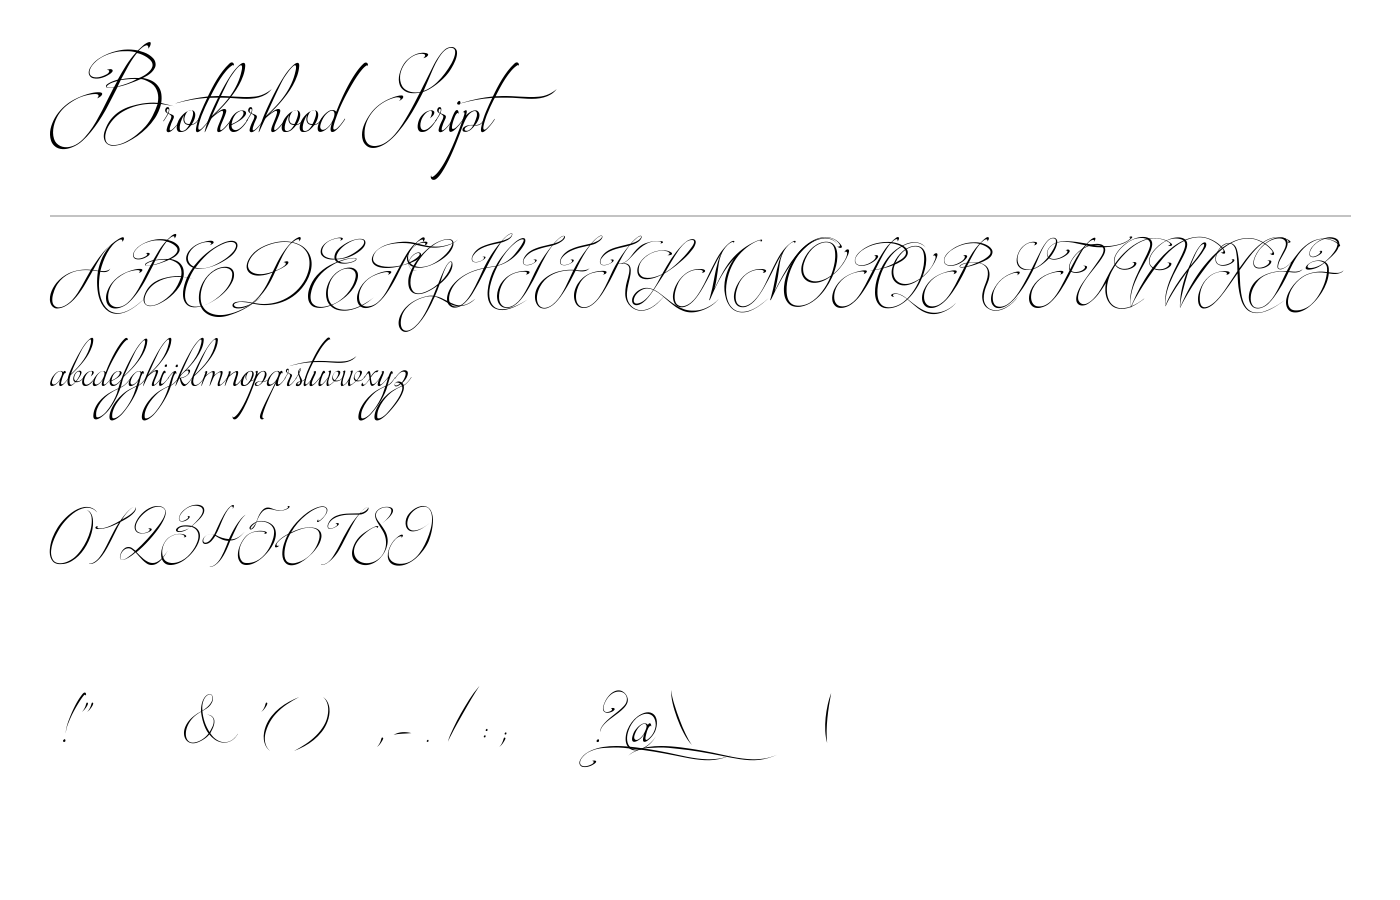 Brotherhood Script
ABCDEFGHIJKLMNOPQRSTUVWXYZ
abcdefghijklmnopqrstuvwxyz
0123456789
!" & '() ,-./:; ?@\_|